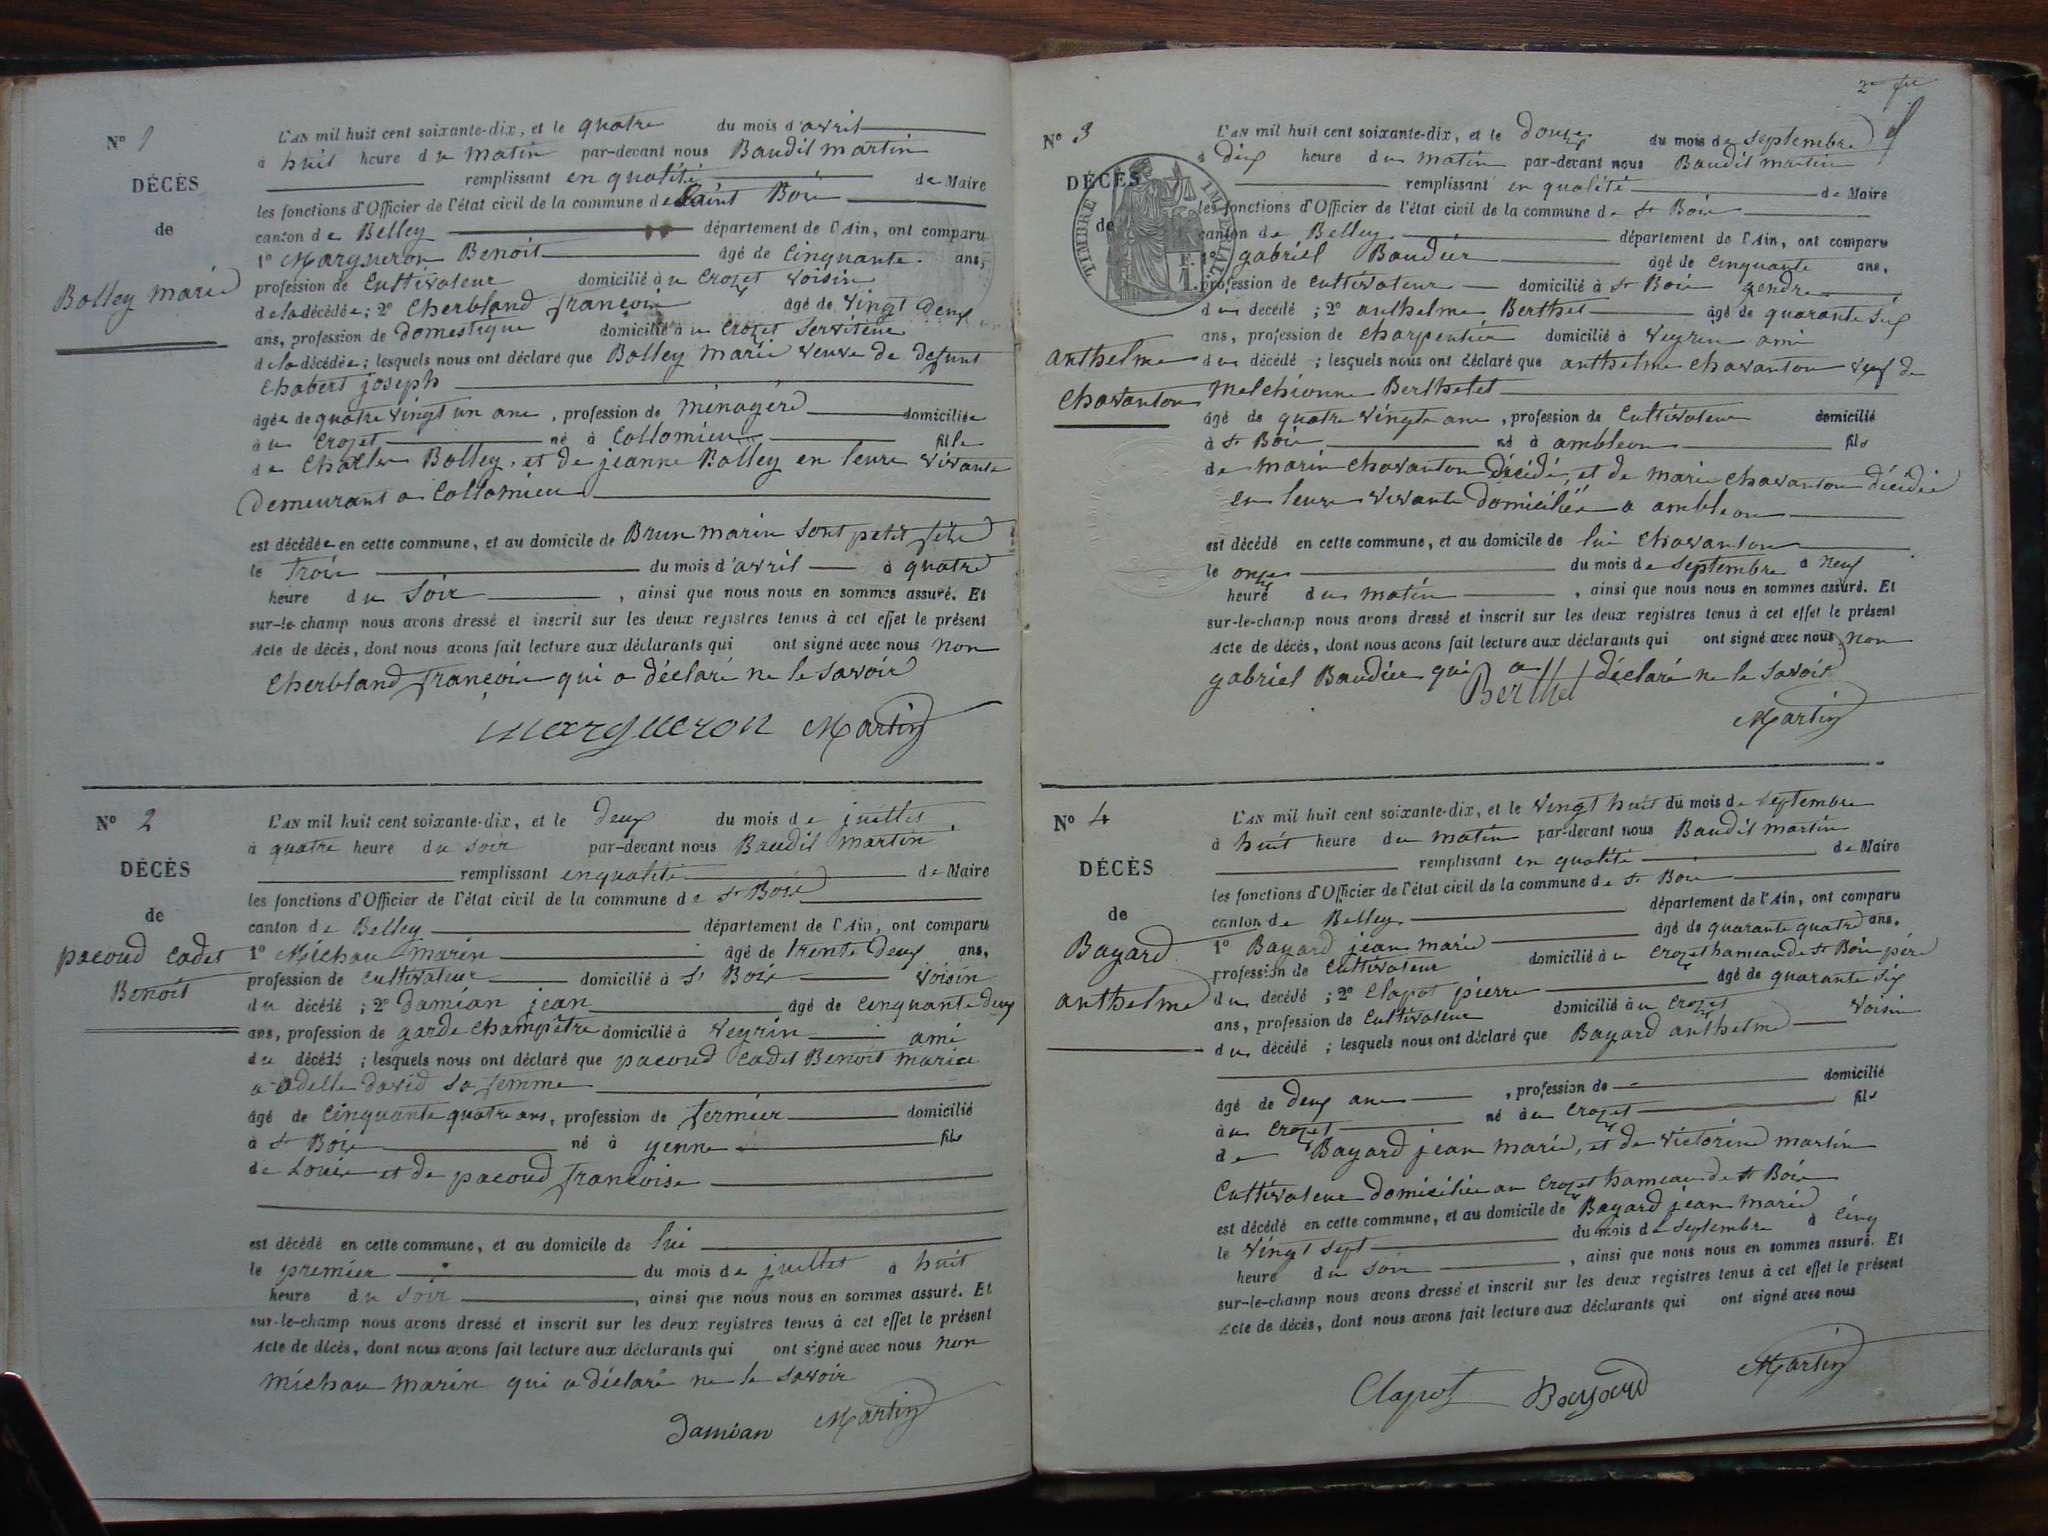 N° 1
DÉCÈS
de
Bolley marie
L'AN mil huit cent soixante-dix, et le quatre du mois d'avril
à huit heure du matin par-devant nous Baudil martin
remplissant en qualité de Maire
les fonctions d'Officier de l'état civil de la commune de Saint Bois
canton de Belley département de l'Ain, ont comparu
1° Margueron Benoit âgé de Cinquante ans,
profession de Cultivateur domicilié à u Crozet voisin
de la décédée; 2° Cherbland françois âgé de vingt deux
ans, profession de domestique domicilié à u Crozet serviteur
de la décédée; lesquels nous ont déclaré que Bolley marie veuve de defunt
Chabert joseph
âgée de quatre vingt un ans, profession de ménagère domiciliée
à u Crozet né à Collomieu fille
de Charles Bolley, et de jeanne Bolley en leurs vivants
Demeurant a Collomieu
est décédée en cette commune, et au domicile de Brun marin sont petit fils
le trois du mois d'avril à quatre
heure du soir, ainsi que nous nous en sommes assuré. Et
sur-le-champ nous avons dressé et inscrit sur les deux registres tenus à cet effet le présent
Acte de décès, dont nous avons fait lecture aux déclarants qui ont signé avec nous non
Cherbland françois qui a déclaré ne le savoir
Margueron Martin
N° 2
DÉCÈS
de
pacoud cadet
Benoit
L'AN mil huit cent soixante-dix, et le deux du mois de juillet
à quatre heure du soir par-devant nous Baudil martin
remplissant en qualité de Maire
les fonctions d'Officier de l'état civil de la commune de St Bois
canton de Belley département de l'Ain, ont comparu
1° Michau marin âgé de trente deux ans,
profession de Cultivateur domicilié à St Bois voisin
du décédé; 2° Damian jean âgé de Cinquante deux
ans, profession de garde Champêtre domicilié à Veyrin ami
du décédé; lesquels nous ont déclaré que pacoud cadet Benoit marié
a adelle david sa femme
âgé de Cinquante quatre ans, profession de fermier domicilié
à St Bois né à yenne fils
de Louis et de pacoud françoise
est décédé en cette commune, et au domicile de lui
le premier du mois de juillet à huit
heure du soir, ainsi que nous nous en sommes assuré. Et
sur-le-champ nous avons dressé et inscrit sur les deux registres tenus à cet effet le présent
Acte de décès, dont nous avons fait lecture aux déclarants qui ont signé avec nous non
Michau marin qui a déclaré ne le savoir
Damian Martin
N° 3
DÉCÈS
de
TIMBRE IMPÉRIAL
anthelme
Chavanton
L'AN mil huit cent soixante-dix, et le douze du mois de septembre
à dix heure du matin par-devant nous Baudil martin
remplissant en qualité de Maire
les fonctions d'Officier de l'état civil de la commune de St Bois
canton de Belley département de l'Ain, ont comparu
1° gabriel Baudier âgé de Cinquante ans,
profession de Cultivateur domicilié à St Bois gendre
du décédé; 2° anthelme Berthet âgé de quarante six
ans, profession de Charpentier domicilié à Veyrin ami
du décédé; lesquels nous ont déclaré que anthelme Chavanton veuf de
Melchionne Berthelet
âgé de quatre vingts ans, profession de Cultivateur domicilié
à St Bois né à ambleon fils
de marin Chavanton Décédé, et de marie Chavanton décédée
en leurs vivants domiciliés a ambleon
est décédé en cette commune, et au domicile de lui Chavanton
le onze du mois de septembre à neuf
heure du matin, ainsi que nous nous en sommes assuré. Et
sur-le-champ nous avons dressé et inscrit sur les deux registres tenus à cet effet le présent
Acte de décès, dont nous avons fait lecture aux déclarants qui ont signé avec nous non
gabriel Baudier qui a déclaré ne le savoir
Berthet
Martin
N° 4
DÉCÈS
de
Bayard
anthelme
L'AN mil huit cent soixante-dix, et le vingt huit du mois de septembre
à huit heure du matin par-devant nous Baudil martin
remplissant en qualité de Maire
les fonctions d'Officier de l'état civil de la commune de St Bois
canton de Belley département de l'Ain, ont comparu
1° Bayard jean marie âgé de quarante quatre ans,
profession de Cultivateur domicilié à u Crozet hameau de St Bois père
du décédé; 2° Clapot pierre âgé de quarante six
ans, profession de Cultivateur domicilié à u Crozet voisin
du décédé; lesquels nous ont déclaré que Bayard anthelme
âgé de deux ans, profession de domicilié
à u Crozet né à u Crozet fils
de Bayard jean marie, et de victorine martin
Cultivateur domiciliés au Crozet hameau de St Bois
est décédé en cette commune, et au domicile de Bayard jean marie
le vingt sept du mois de septembre à cinq
heure du soir, ainsi que nous nous en sommes assuré. Et
sur-le-champ nous avons dressé et inscrit sur les deux registres tenus à cet effet le présent
Acte de décès, dont nous avons fait lecture aux déclarants qui ont signé avec nous
Clapot Bayard Martin